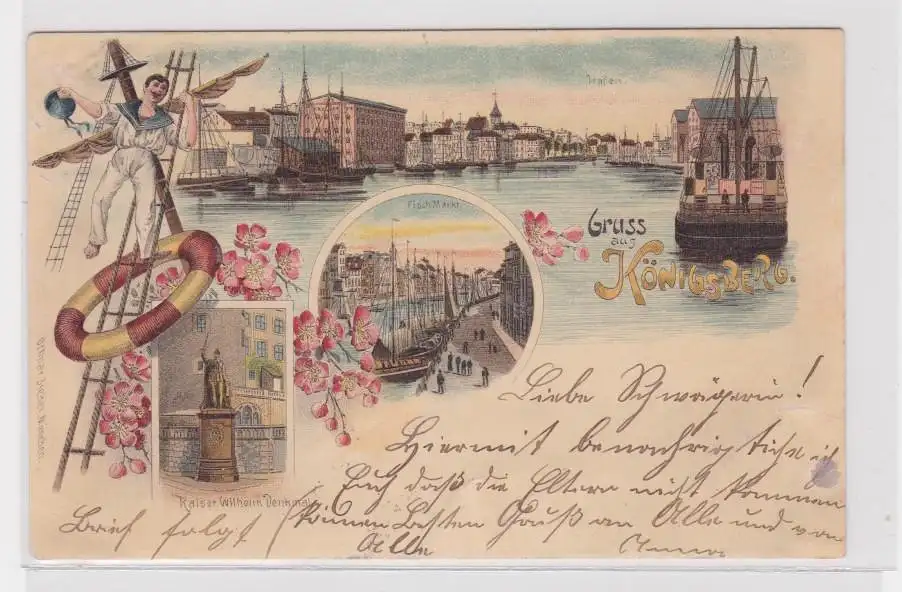 Hafen.
Fisch Markt.
Gruss
aus
KÖNIGSBERG.
Kaiser Wilhelm Denkmal.
Liebe Schwägerin!
Hiermit benachrigtige ich
Euch daß die Eltern nicht kommen
können Besten Gruß an Alle und von
Alle
Brief folgt